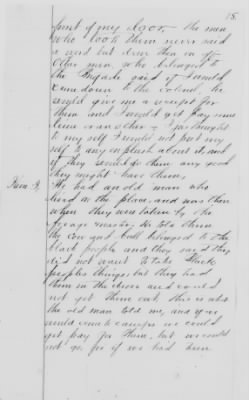 15.
front of my door, the men
who took them never said
a word but drove them in off
Other men, who belonged to
the Brigade said if I would
come down to the Colonel, he
would give me a receipt for
them and I would get pay some
time or another - I thought
to myself I would not put my
self to any about it, and
if they could do them any good
they might have them.
We had an old man who
lived on the place, and was there
when they were taken by the
He told them
the cow and bull belonged to the
black people and they said they
did not want to take black
peoples things, but they had
them in the drove and could
not get them out, this is what
the old man told me, and if we
would come to camps we could
get pay for them, but we could
not go, for if we had been